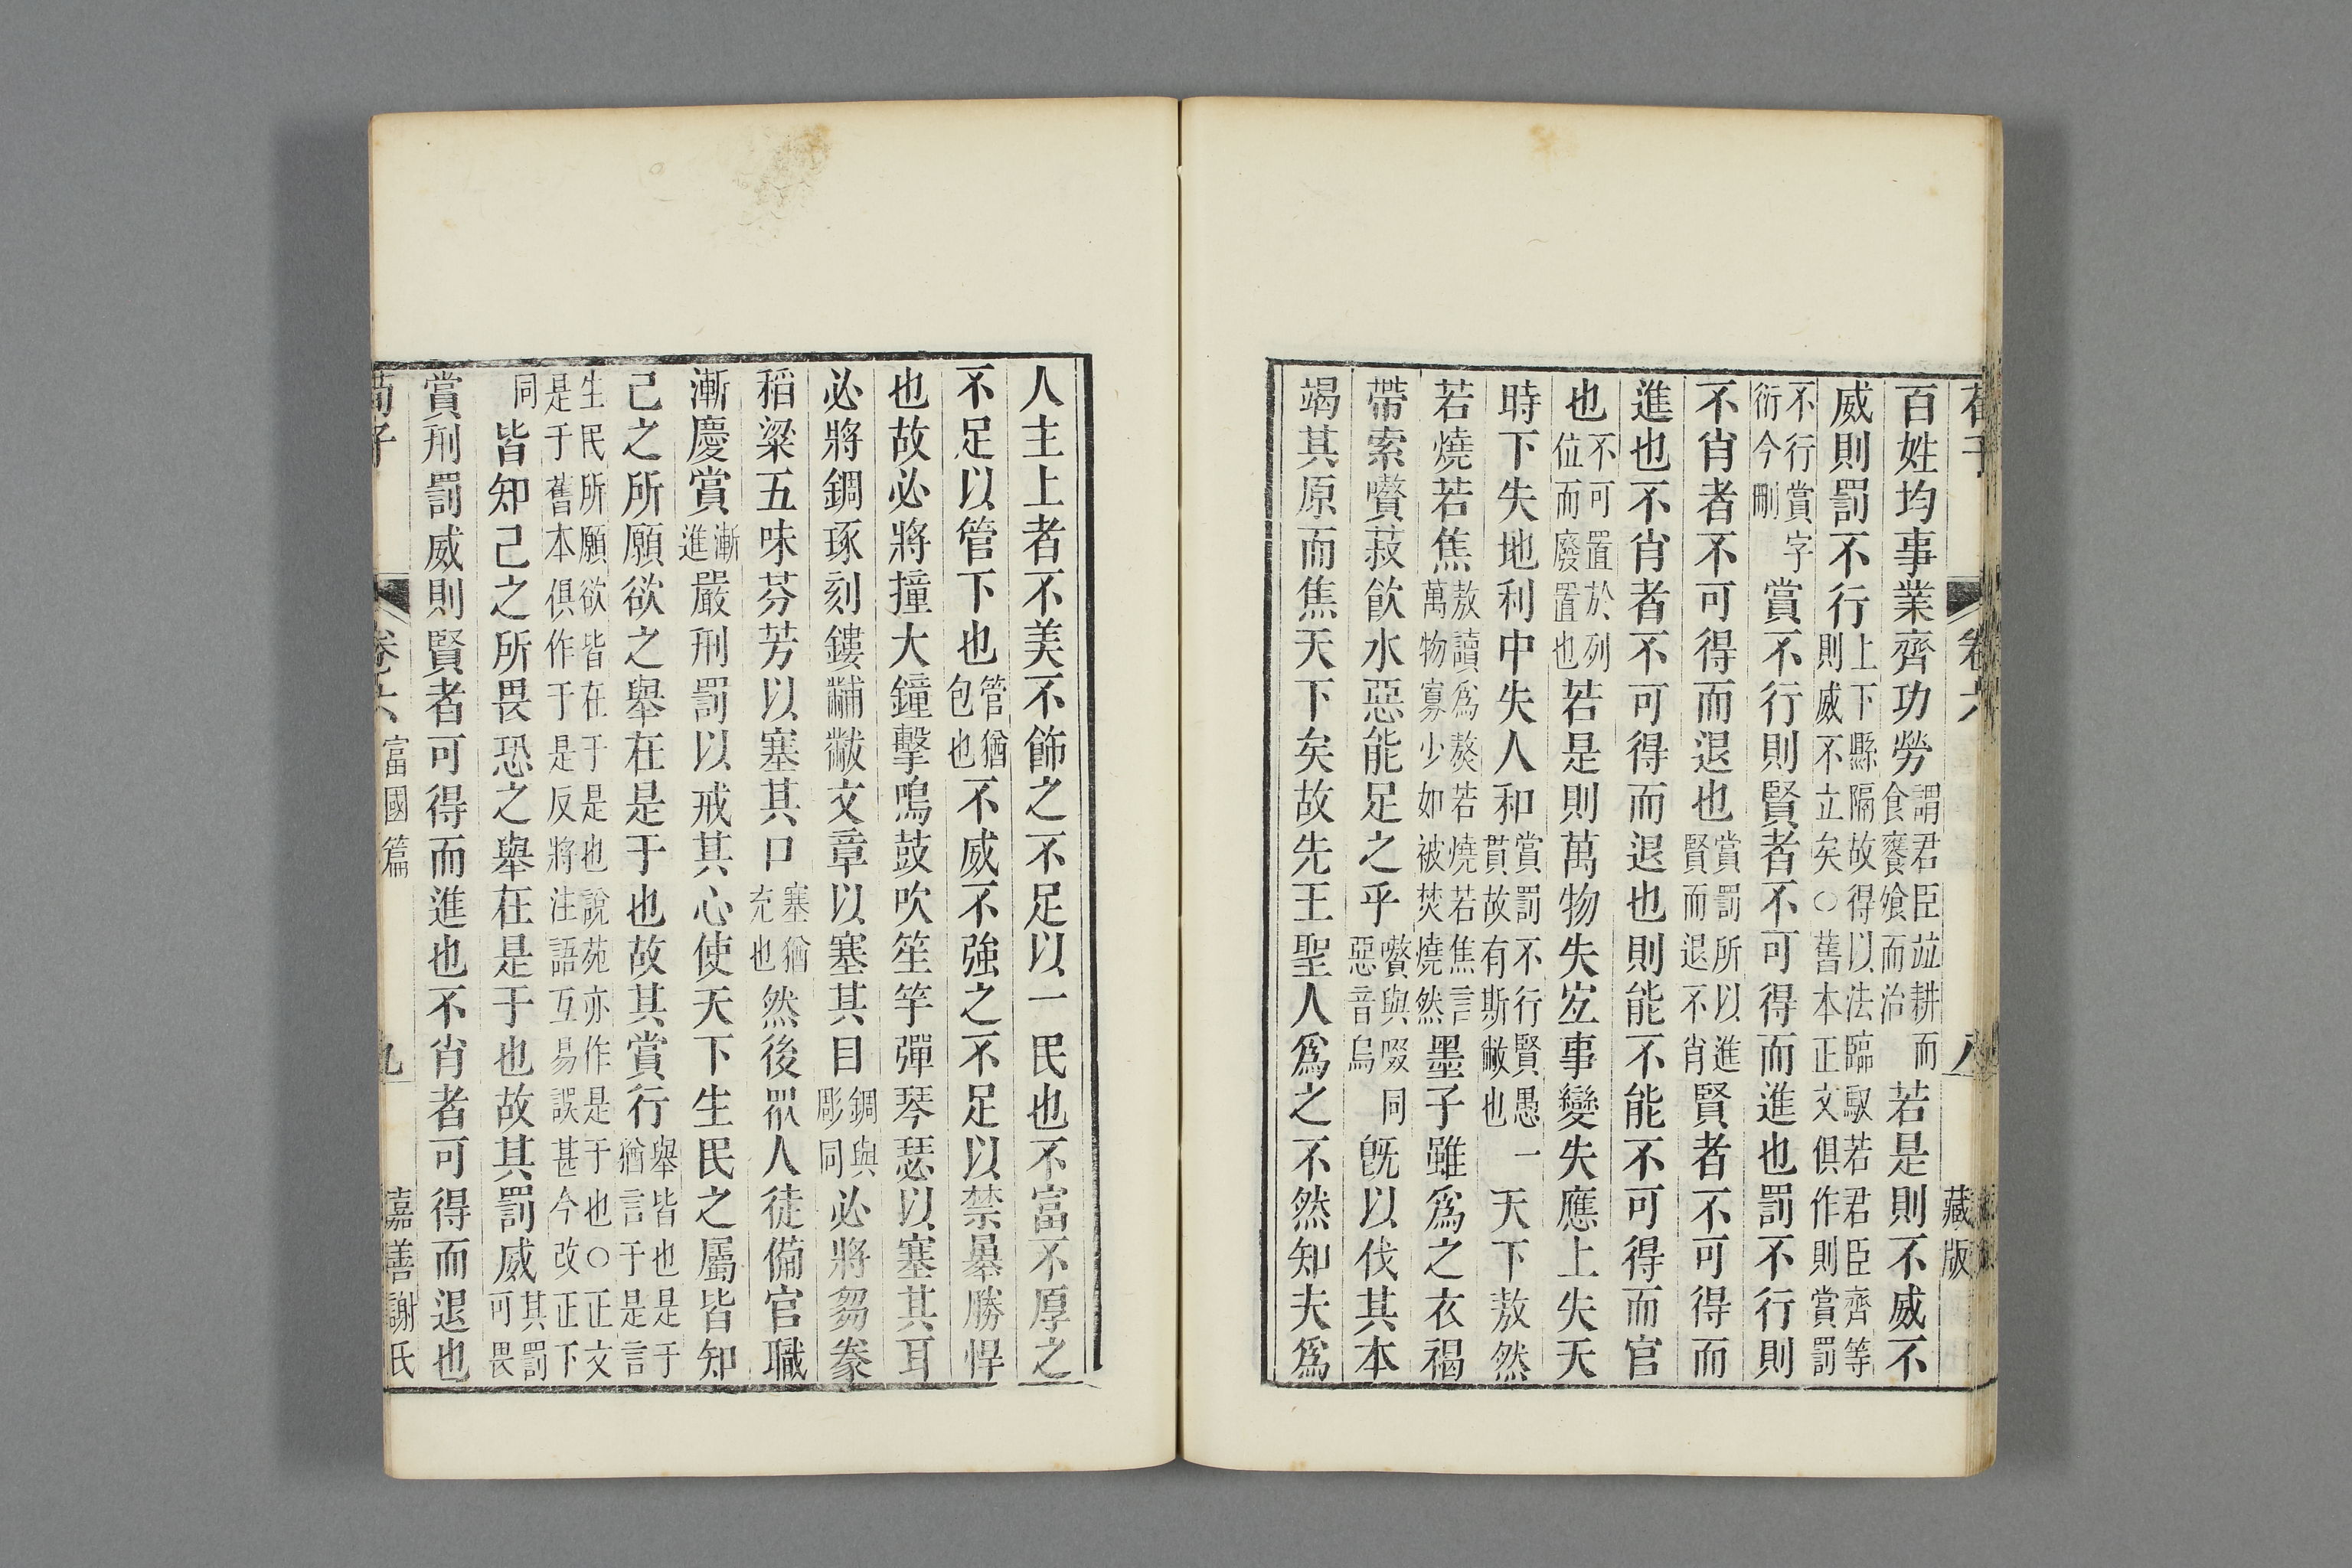 荀子 卷六 八 藏版
百姓均事業齊功勞謂君臣竝耕而食饔飧而治若是則不威不
威則罰不行上下縣隔故得以法臨馭若君臣齊等則威不立矣○舊本正文俱作則賞罰
不行賞字衍今刪賞不行則賢者不可得而進也罰不行則
不肖者不可得而退也賞罰所以進賢而退不肖賢者不可得而
進也不肖者不可得而退也則能不能不可得而官
也不可置於列位而廢置也若是則萬物失宐事變失應上失天
時下失地利中失人和賞罰不行賢愚一貫故有斯敝也天下敖然
若燒若焦敖讀爲熬若燒若焦言萬物寡少如被焚燒然墨子雖爲之衣褐
帶索嚽菽飮水惡能足之乎嚽與啜同惡音烏旣以伐其本
竭其原而焦天下矣故先王聖人爲之不然知夫爲
人主上者不美不飾之不足以一民也不富不厚之
不足以管下也管猶包也不威不強之不足以禁暴勝悍
也故必將撞大鐘擊鳴鼓吹笙竽彈琴瑟以塞其耳
必將錭琢刻鏤黼黻文章以塞其目錭與彫同必將芻豢
稻粱五味芬芳以塞其口塞猶充也然後眾人徒備官職
漸慶賞漸進嚴刑罰以戒其心使天下生民之屬皆知
己之所願欲之舉在是于也故其賞行舉皆也是于猶言于是言
生民所願欲皆在于是也說苑亦作是于也○正文是于舊本俱作于是反將注語互易誤甚今改正下
同皆知己之所畏恐之舉在是于也故其罰威其罰可畏
賞刑罰威則賢者可得而進也不肖者可得而退也
荀子 卷六 富國篇 九 嘉善謝氏